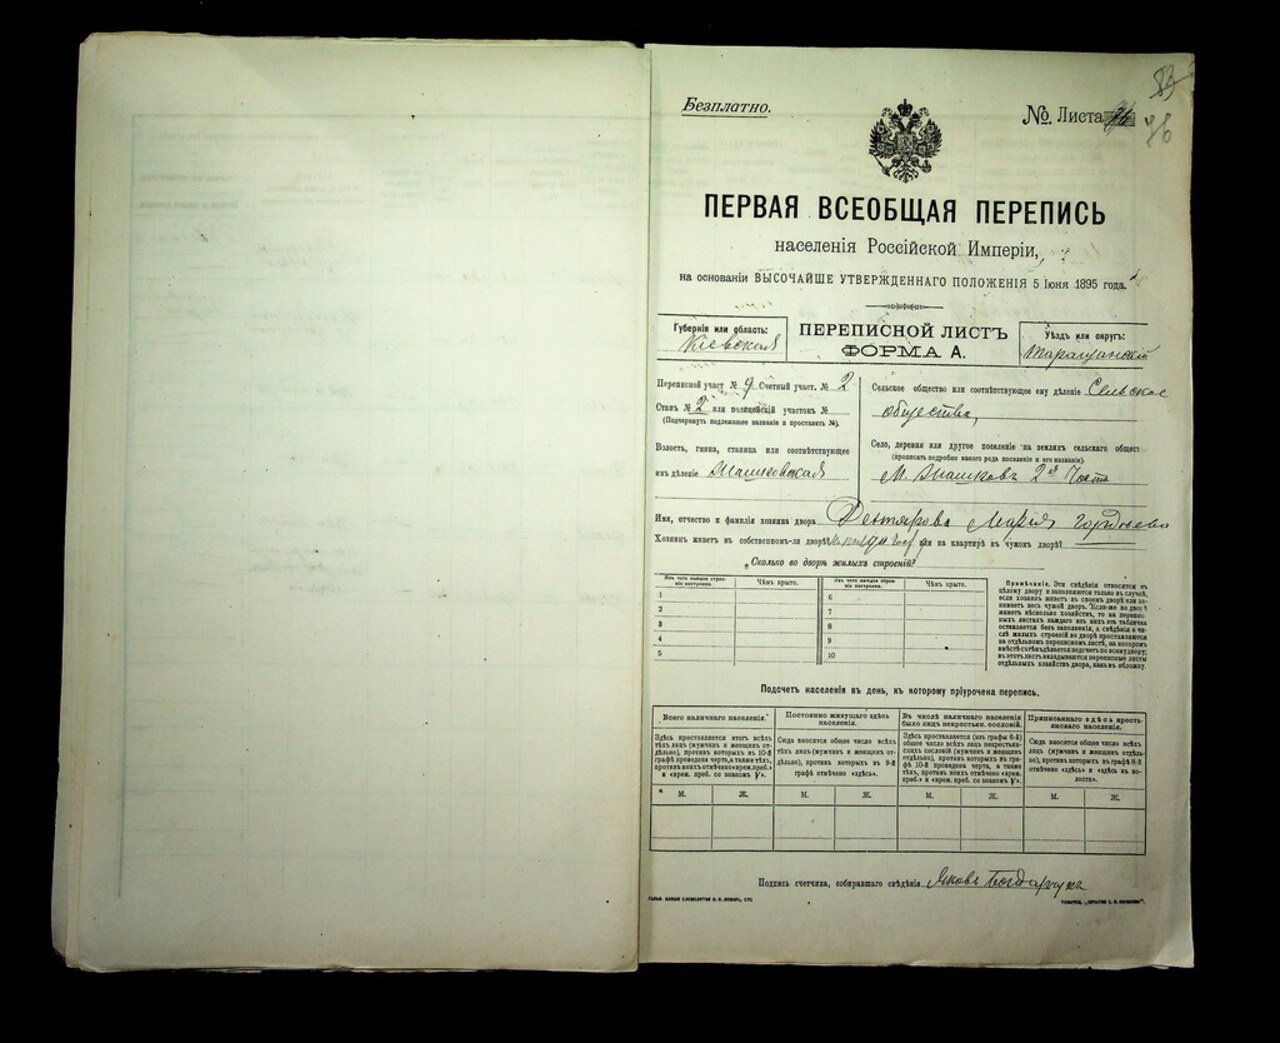 83
Безплатно.
№ Листа 76
76
ПЕРВАЯ ВСЕОБЩАЯ ПЕРЕПИСЬ
населенія Россійской Имперіи,
на основаніи ВЫСОЧАЙШЕ УТВЕРЖДЕННАГО ПОЛОЖЕНІЯ 5 Іюня 1895 года.
Губернія или область:
Кіевская
ПЕРЕПИСНОЙ ЛИСТЪ
ФОРМА А.
Уѣздъ или округъ:
Таращанскій
Переписной участ № 9 Счетный участ. № 2
Станъ № 2 или полицейскій участокъ №
(Подчеркнуть подлежащее названіе и проставить №).
Волость, гмина, станица или соотвѣтствующее
имъ дѣленіе
Сельское общество или соотвѣтствующее ему дѣленіе Сельское
общество,
Село, деревня или другое поселеніе на земляхъ сельскаго общест
(прописать подробно какого рода поселеніе и его названіе).
М. 2я Часть
Имя, отчество и фамилія хозяина двора Марія Гордѣева
Хозяинъ живетъ въ собственномъ-ли дворѣ или на квартирѣ въ чужомъ дворѣ?
Сколько во дворѣ жилыхъ строеній?
Изъ чего каждое строеніе построено.
Чѣмъ крыто.
Изъ чего каждое строеніе построено.
Чѣмъ крыто.
1
2
3
4
5
6
7
8
9
10
Примѣчаніе. Эти свѣдѣнія относятся къ
цѣлому двору и заполняются только въ случаѣ,
если хозяинъ живетъ въ своемъ дворѣ или за-
нимаетъ весь чужой дворъ. Если-же во дворѣ
живетъ нѣсколько хозяйствъ, то на перепис-
ныхъ листахъ каждаго изъ нихъ эта табличка
оставляется безъ заполненія, а свѣдѣнія о чи-
слѣ жилыхъ строеній во дворѣ проставляются
на отдѣльномъ переписномъ листѣ, на которомъ
вмѣстѣ съ тѣмъ дѣлается подсчетъ по всему двору;
въ этотъ листъ вкладываются переписные листы
отдѣльныхъ хозяйствъ двора, какъ въ обложку.
Подсчетъ населенія въ день, къ которому пріурочена перепись.
Всего наличнаго населенія.
Здѣсь проставляется итогъ всѣхъ
тѣхъ лицъ (мужчинъ и женщинъ от-
дѣльно), противъ которыхъ въ 10-й
графѣ проведена черта, а также тѣхъ,
противъ коихъ отмѣчено «врем. преб.»
и «врем. преб. со знакомъ V».
Постоянно живущаго здѣсь
населенія.
Сюда вносится общее число всѣхъ
тѣхъ лицъ (мужчинъ и женщинъ от-
дѣльно), противъ которыхъ въ 9-й
графѣ отмѣчено «здѣсь».
Въ числѣ наличнаго населенія
было лицъ некрестьян. сословій.
Здѣсь проставляется (изъ графы 6-й)
общее число всѣхъ лицъ некрестьян-
скихъ сословій (мужчинъ и женщинъ
отдѣльно), противъ которыхъ въ
графѣ 10-й проведена черта, а также
тѣхъ, противъ коихъ отмѣчено «врем.
преб.» и «врем. преб. со знакомъ V».
Приписаннаго здѣсь кресть-
янскаго населенія.
Сюда вносится общее число всѣхъ
лицъ (мужчинъ и женщинъ отдѣль-
но), противъ которыхъ въ графѣ 8-й
отмѣчено «здѣсь» и «здѣсь въ во-
лости».
М. Ж. М. Ж. М. Ж. М. Ж.
Подпись счетчика, собиравшаго свѣдѣнія Яковъ